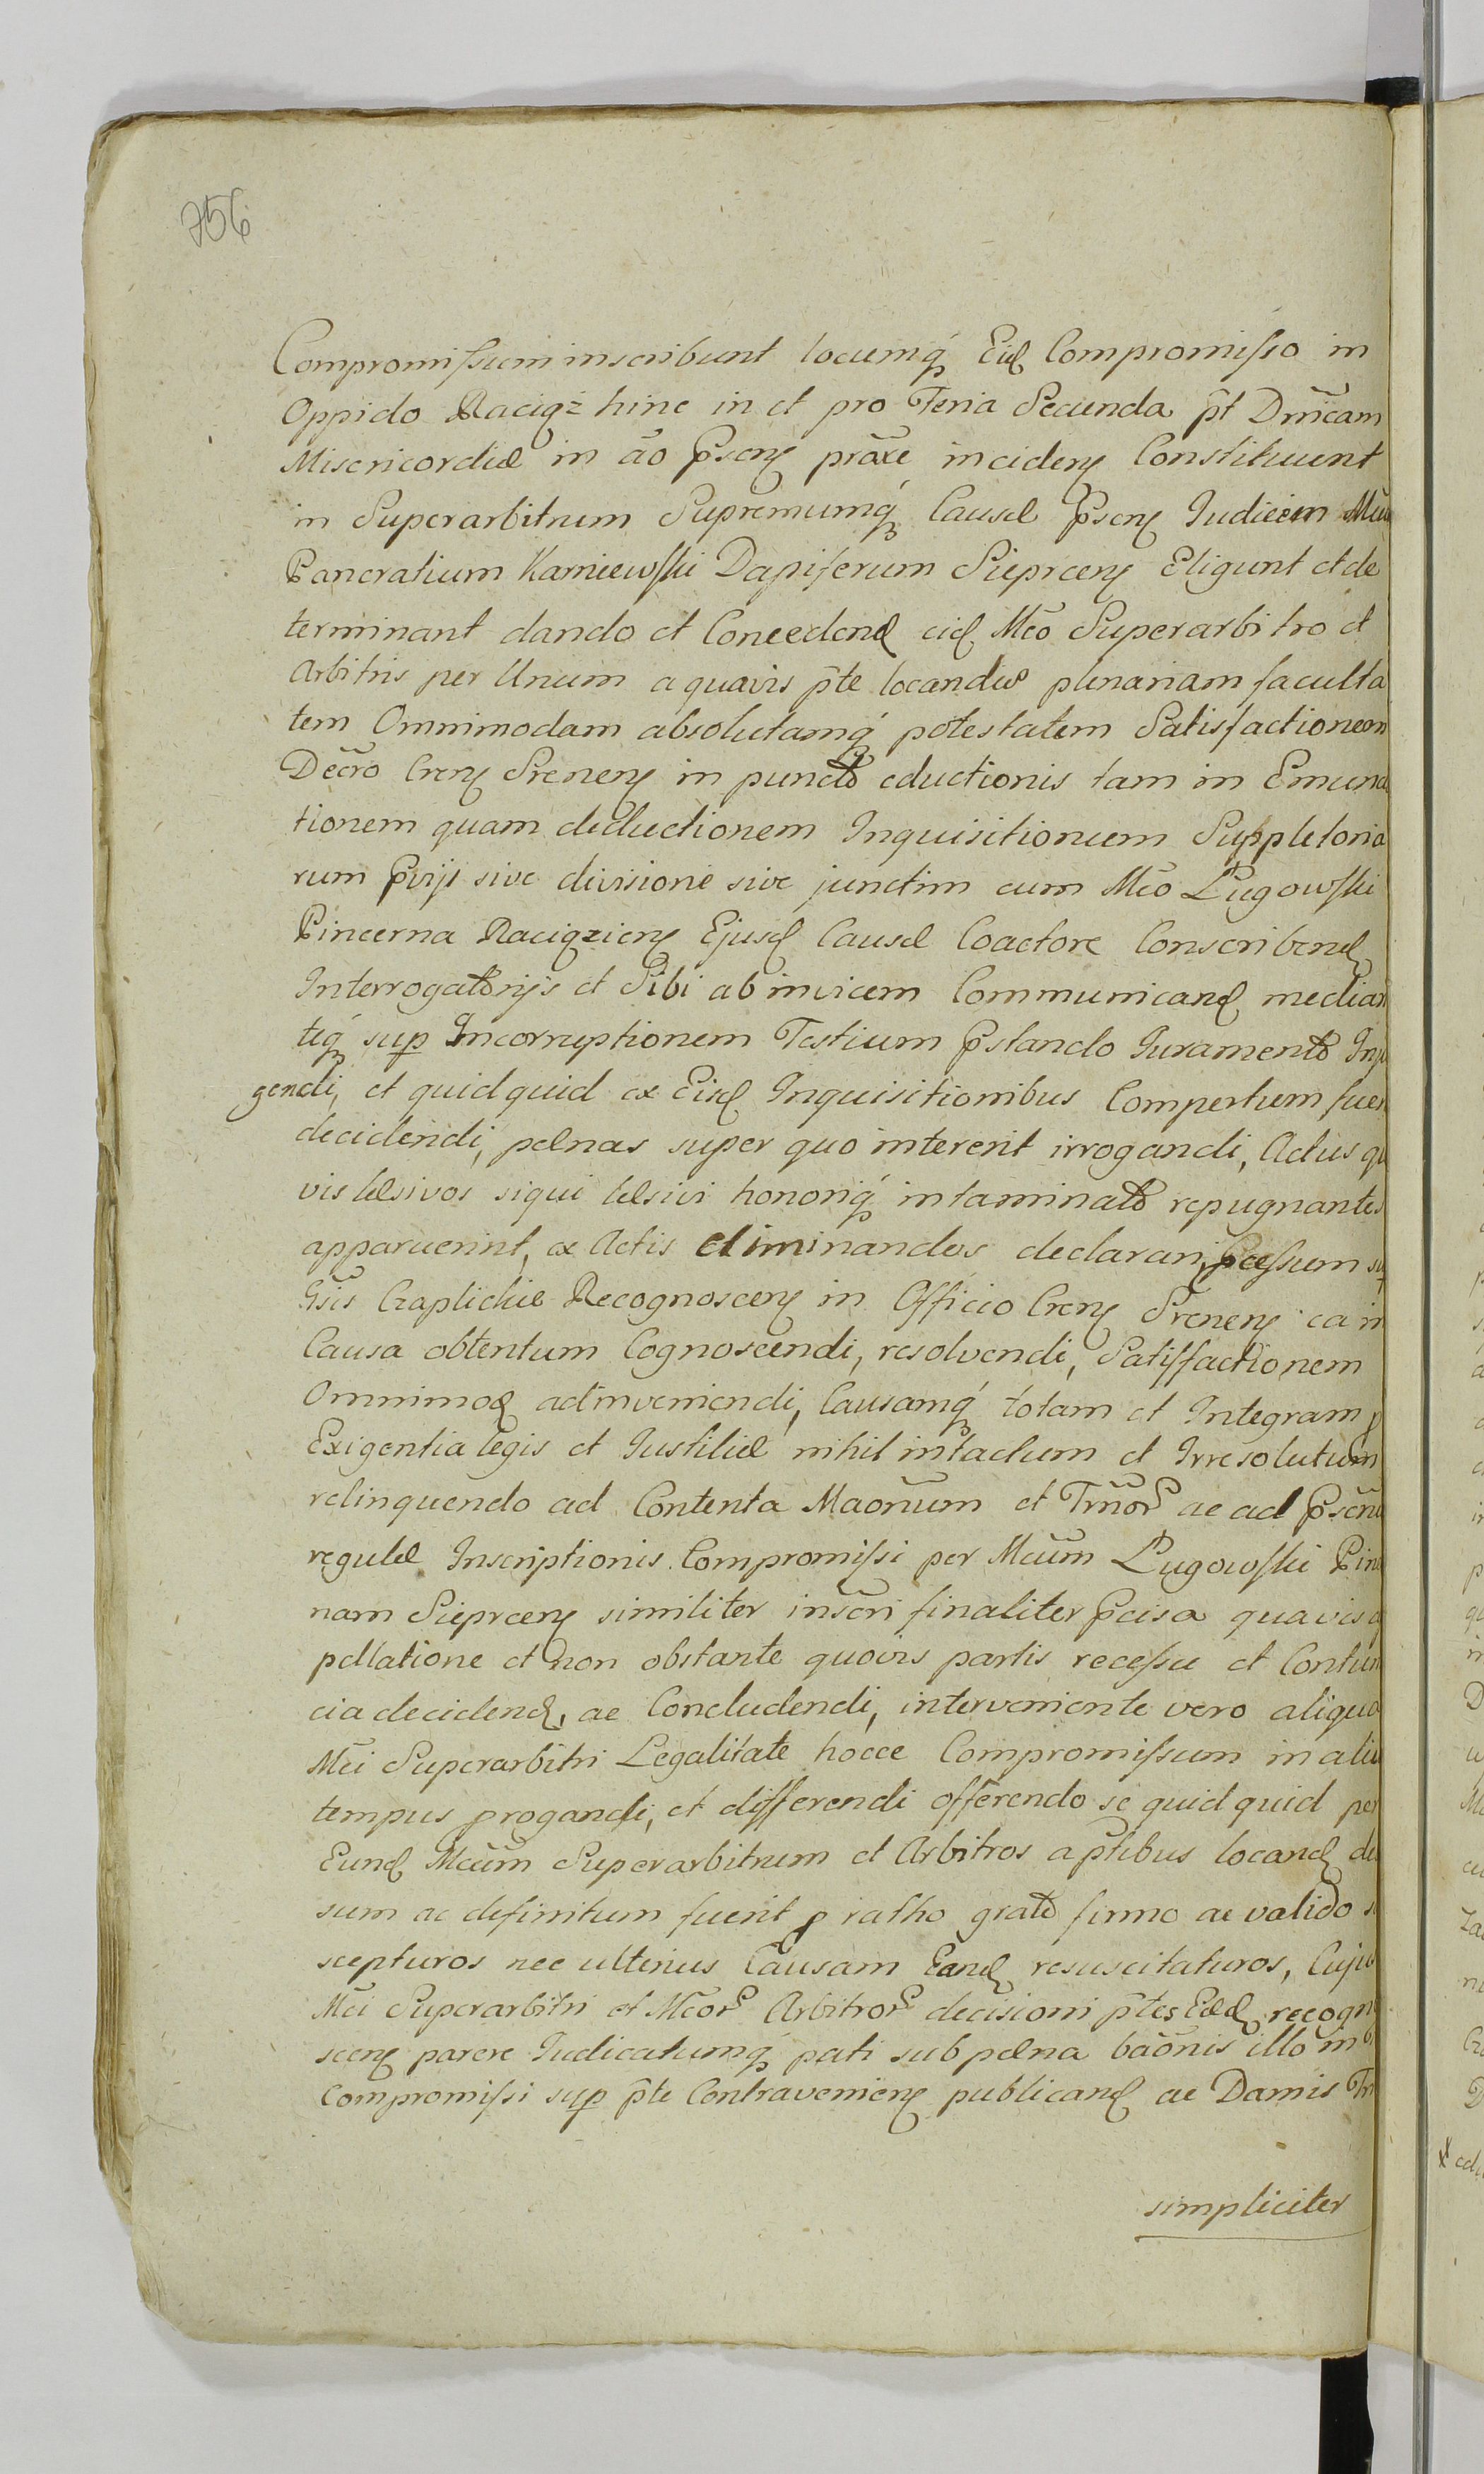 756
Compromissum inscribunt locumq́ Eid Compromisso in
Oppido Raciąż hinc in et pro Feria Secunda p̃t Dm̃cam
Misericordiæ in ão p̃sen prãxe inciden Constituunt
in Superarbitrum Supremumq́ Causæ p̃sen Iudicem
Pancratium Karniewski Dapiferum Sieprcen Eligunt et de
terminant dando et Concedend eid Mco Superarbitro et
Arbitris per Unum a quavis p̃te locandis plenariam faculta
tem Omnimodam absolutamq́ potestatem Satisfactionem
Decro Cren Srenen in puncto eductionis tam in Emuna
tionem quam deductionem Inquisitionum Suppletoria
rum p̃vijs sive divisione sive junctim cum Mco Ługowski
Pincerna Raciązien Ejusd Causæ Coactore Conscribend
Interrogatorijs et Sibi ab invicem Communicand median
teq́ sup Incorruptionem Testium p̃stando Iuramento
gendi, et quidquid ex Eisd Inquisitionibus Compertum fuer
decidendi, pœnas super quo intererit irrogandi, Actus qu
vis læsivos siqui læsivi honoriq́ intaminato repugnantes
apparuerint, ex Actis eliminandos declaran, p̃cessum sup
Gsis Czaplickie Recognoscen in Officio Cren Srenen ea in
Causa obtentum Cognoscendi, resolvendi, Satisfactionem
Omnimod adinveniendi, Causamq́ totam et Integram p
Exigentia legis et Iustitiæ nihil intactum et Irresolutum
relinquendo ad Contenta Maonum et Tm̃or ac ad p̃sen
regulæ Inscriptionis Compromissi per Mcum Ługowski Pin
nam Sieprcen similiter inscri finaliter p̃cisa quavis a
pellatione et non obstante quovis partis recessu et Contu
cia decidend, ac Concludendi, interveniente vero aliqua
Mci Superarbitri Legalitate hocce Compromissum in aliu
tempus progandi, et differendi offerendo se quidquid per
Eund Mcum Superarbitrum et Arbitros a p̃tibus locand de
sum ac definitum fuerit p ratho grato firmo ac valido s
scepturos nec ulterius Causam Eand resuscitaturos, Cuju
Mci Superarbitri et Mcor Arbitror decisioni p̃tes Eæd recogn
scen parere Iudicatumq́ pati sub pœna bãonis illo in
Compromissi sup p̃te Contravenien publicand ac Damis
simpliciter